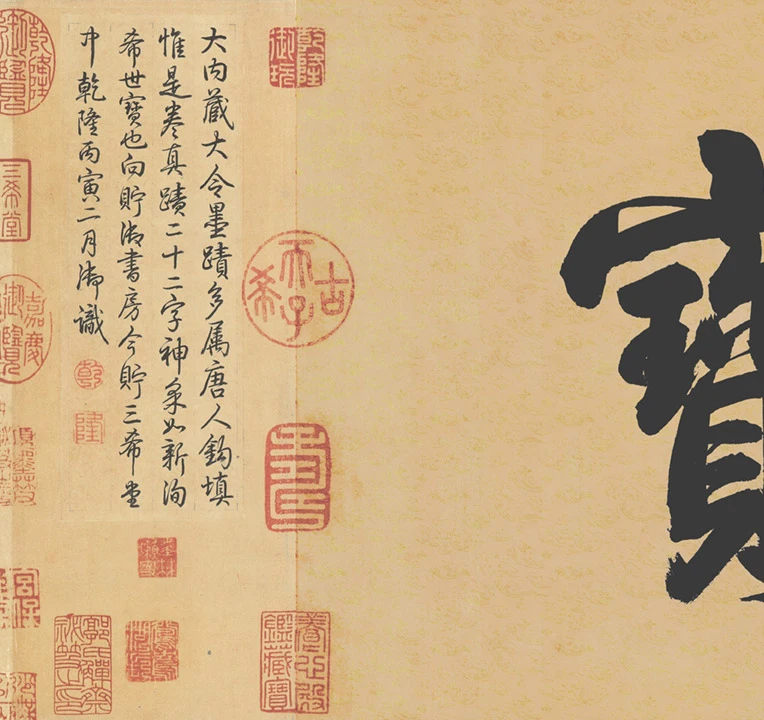 寶
乾隆御玩
古希天子
壽
養心殿鑑藏寶
大内藏大令墨蹟多屬唐人鈎填
惟是卷真蹟二十二字神采如新洵
希世寶也向貯御書房今貯三希堂
中乾隆丙寅二月御識
乾
隆
郭氏觶齋秘笈之印
乾隆御覽
三希堂
嘉慶御覽
宮保